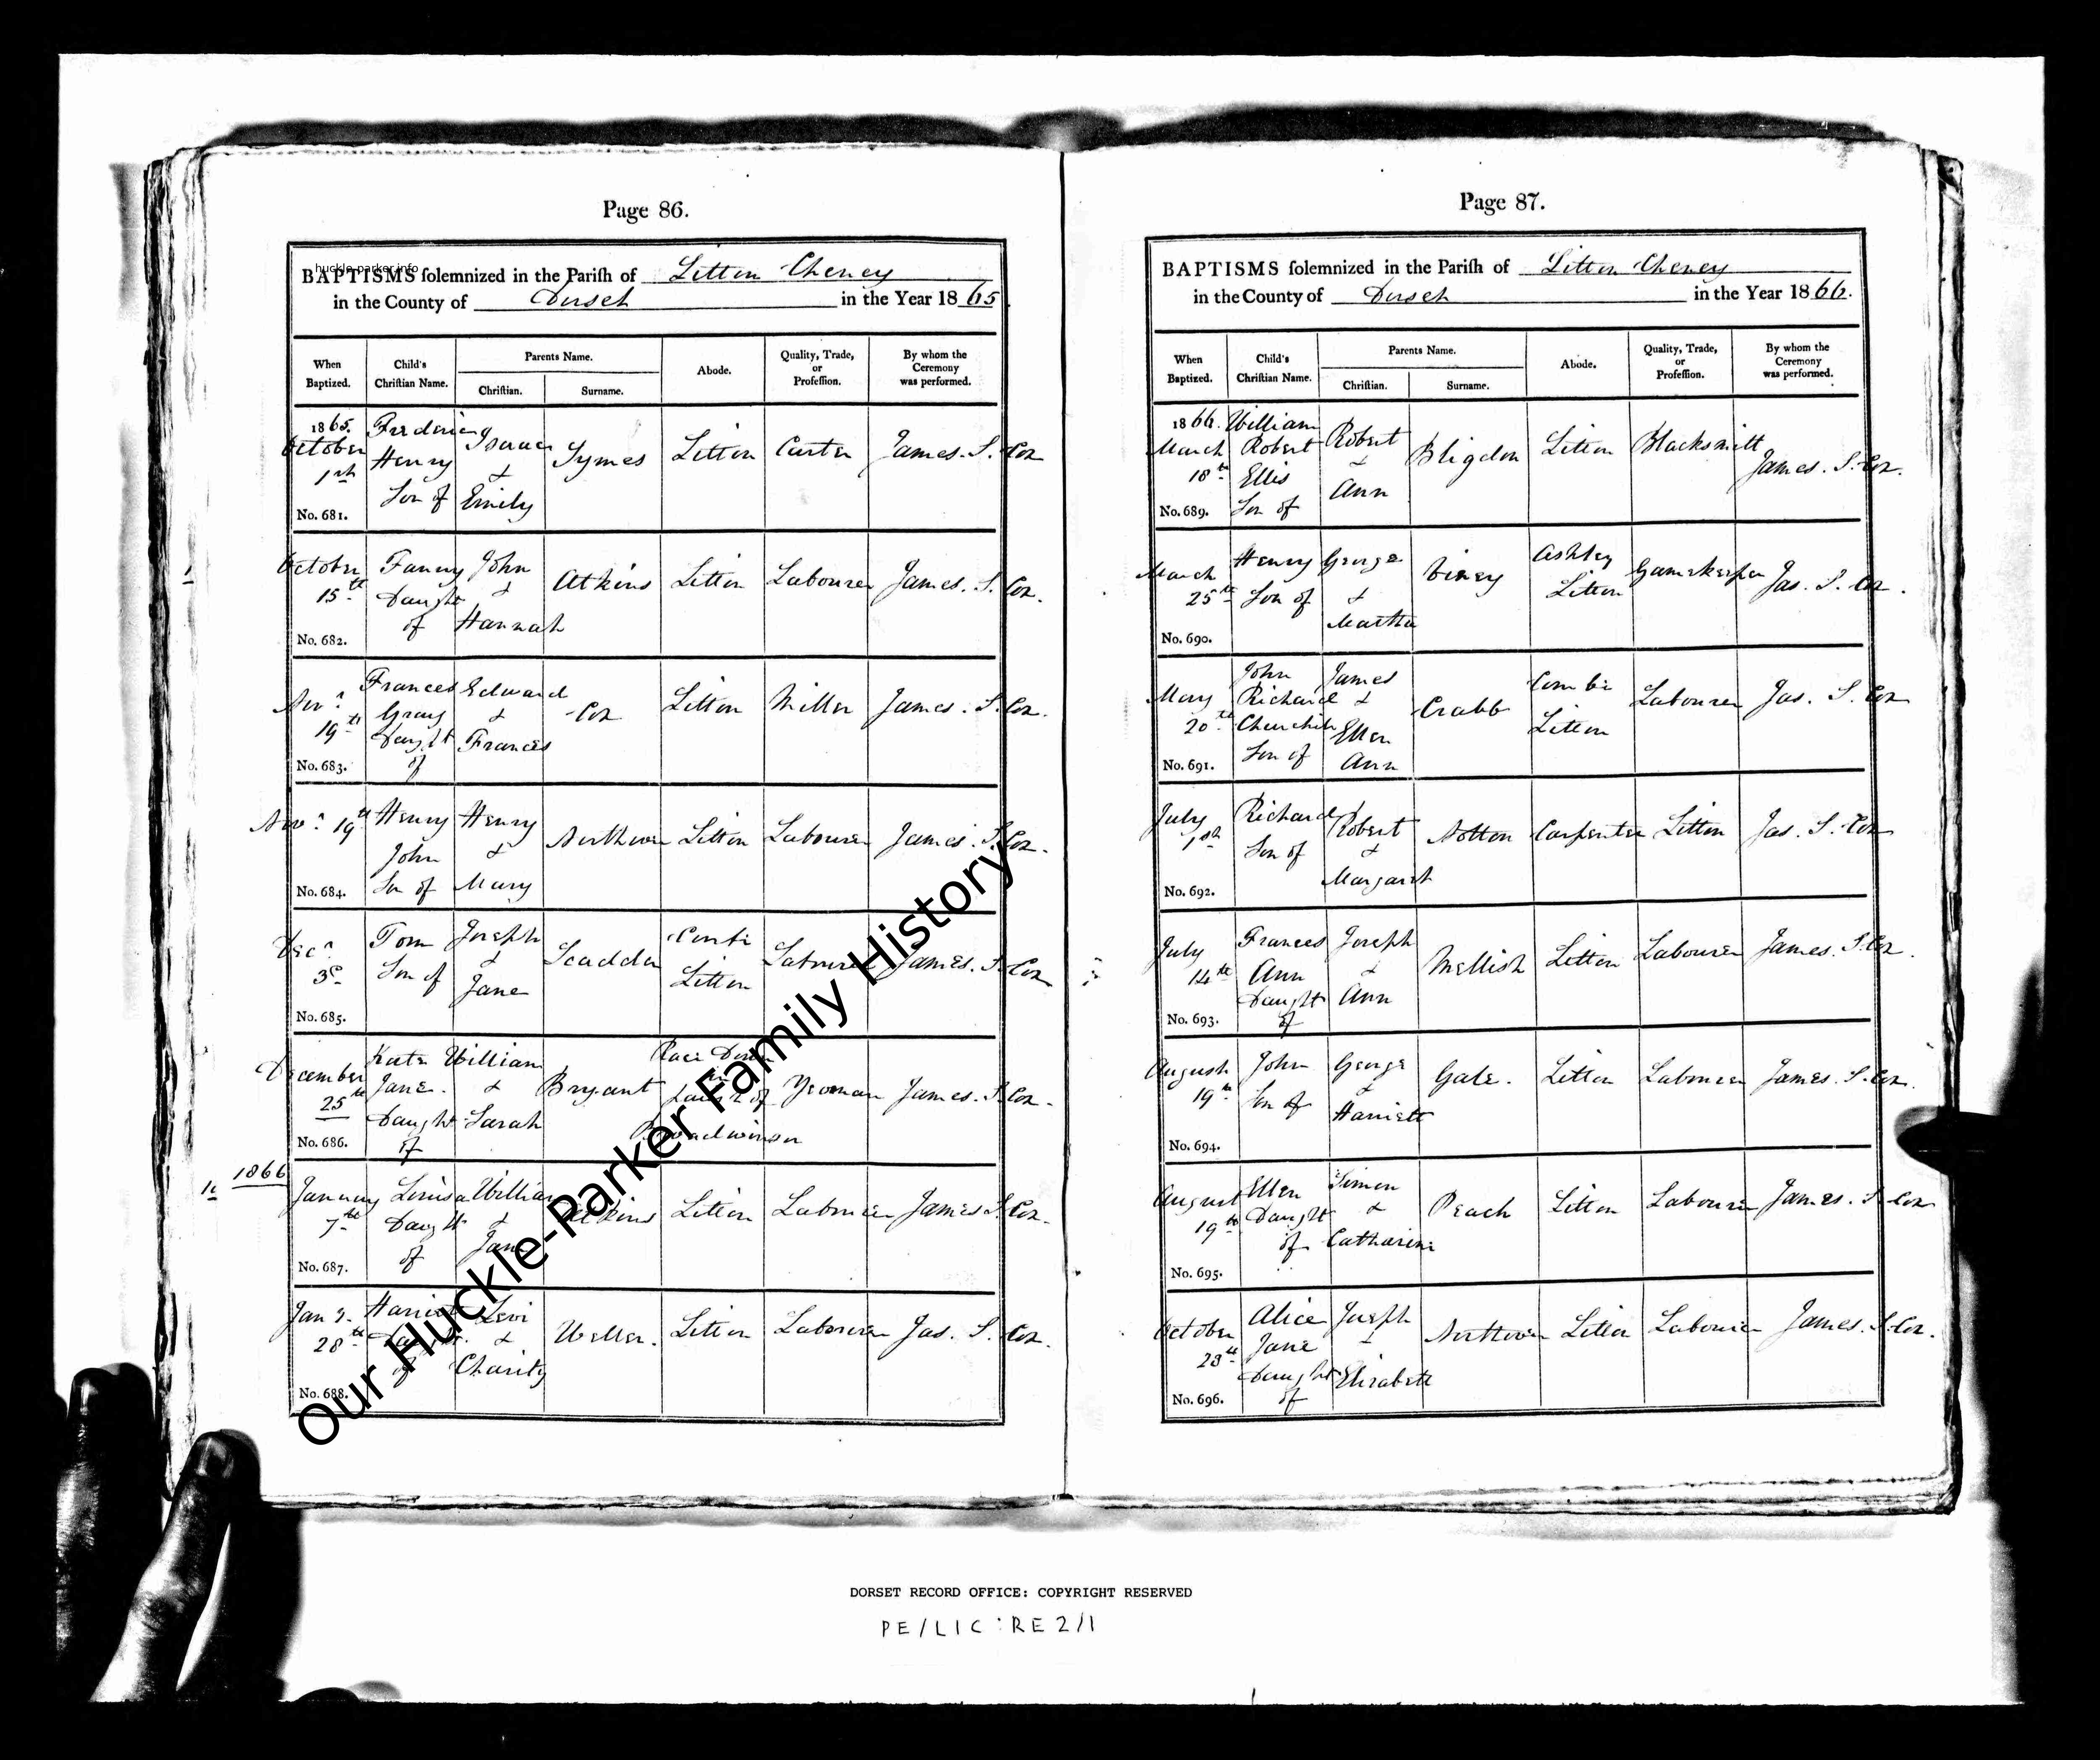 Page 86.
huckle-parker.info
BAPTISMS solemnized in the Parish of Litton Cheney
in the County of Dorset in the Year 1865
When Baptized.
Child's Christian Name.
Parents Name.
Christian.
Surname.
Abode.
Quality, Trade, or Profession.
By whom the Ceremony was performed.
1865. October 1st No. 681. Frederic Henry Son of Isaac & Emily Symes Litton Carter James. S. Cox
October 15th No. 682. Fanny Daught of John & Hannah Atkins Litton Labourer James. S. Cox.
Novr 19th No. 683. Frances Gray Daught of Edward & Frances Cox Litton Miller James. S. Cox.
Novr 19th No. 684. Henry John Son of Henry & Mary Northover Litton Labourer James. S. Cox.
Decr 3d No. 685. Tom Son of Joseph & Jane Scadden Litton Labourer James. S. Cox
December 25th No. 686. Kate Jane. Daught of William & Sarah Bryant Race Down in Broadwinsor Yeoman James. S. Cox.
1866
January 7th No. 687. Louisa Daught of William & Jane Atkins Litton Labourer James S. Cox.
Jany 28th No. 688. Harriet Daught of Levi & Charity Weller. Litton Labourer Jas. S. Cox.
Our Huckle-Parker Family History
Page 87.
BAPTISMS solemnized in the Parish of Litton Cheney
in the County of Dorset in the Year 1866.
When Baptized.
Child's Christian Name.
Parents Name.
Christian.
Surname.
Abode.
Quality, Trade, or Profession.
By whom the Ceremony was performed.
1866. March 18th No. 689. William Robert Ellis Son of Robert & Ann Bligdon Litton Blacksmith James. S. Cox.
March 25th No. 690. Henry Son of George & Martha Viney Ashley Litton Gamekeeper Jas. S. Cox.
May 20th No. 691. John Richard Churchill Son of James & Ellen Ann Crabb Combe Litton Labourer Jas. S. Cox
July 1st No. 692. Richard Son of Robert & Margaret Notton Carpenter Litton Jas. S. Cox
July 14th No. 693. Frances Ann Daught of Joseph & Ann Mellish Litton Labourer James. S. Cox.
August 19th No. 694. John Son of George & Harriett Gale. Litton Labourer James. S. Cox.
August 19th No. 695. Ellen Daught of Simon & Catharine Peach Litton Labourer James. S. Cox
October 28th No. 696. Alice Jane Daught of Joseph & Elizabeth Northover Litton Labourer James. S. Cox.
DORSET RECORD OFFICE: COPYRIGHT RESERVED
PE/LIC:RE2/1